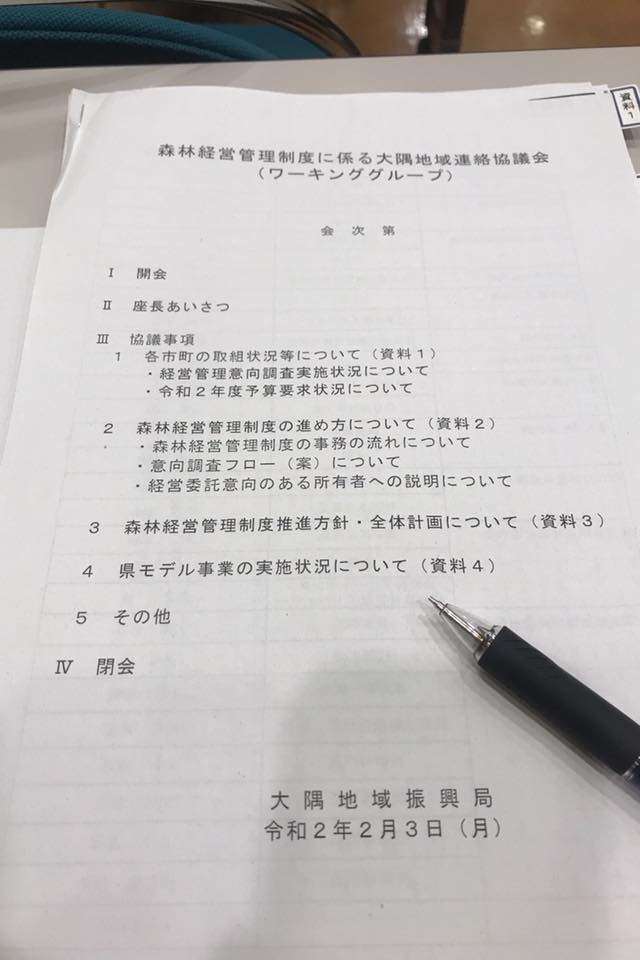 資料1
森林経営管理制度に係る大隅地域連絡協議会
(ワーキンググループ)
会 次 第
Ⅰ 開会
Ⅱ 座長あいさつ
Ⅲ 協議事項
1 各市町の取組状況等について(資料1)
・経営管理意向調査実施状況について
・令和2年度予算要求状況について
2 森林経営管理制度の進め方について(資料2)
・森林経営管理制度の事務の流れについて
・意向調査フロー(案)について
・経営委託意向のある所有者への説明について
3 森林経営管理制度推進方針・全体計画について(資料3)
4 県モデル事業の実施状況について(資料4)
5 その他
Ⅳ 閉会
大隅地域振興局
令和2年2月3日(月)